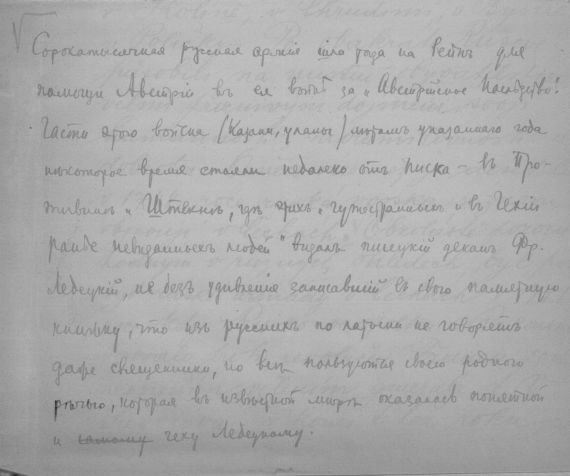 Сорокатысячная русская армія шла тогда на Рейнъ для
помощи Австріи въ ея войнѣ за „Австрійское Наслѣдство".
Части этого войска (казаки, уланы) лѣтомъ указаннаго года
нѣкоторое время стояли недалеко отъ Писка – въ Про-
тивинѣ и Штекнѣ, гдѣ этихъ „чужестранныхъ и въ Чехіи
ранѣе невиданныхъ людей" видѣлъ писецкій деканъ Фр.
Лебецкій, не безъ удивленія записавшій въ свою памятную
книжку, что изъ русскихъ по латыни не говорятъ
даже священники, но всѣ пользуются своею родною
рѣчью, которая въ извѣстной мѣрѣ оказалась понятной
и самому чеху Лебецкому.